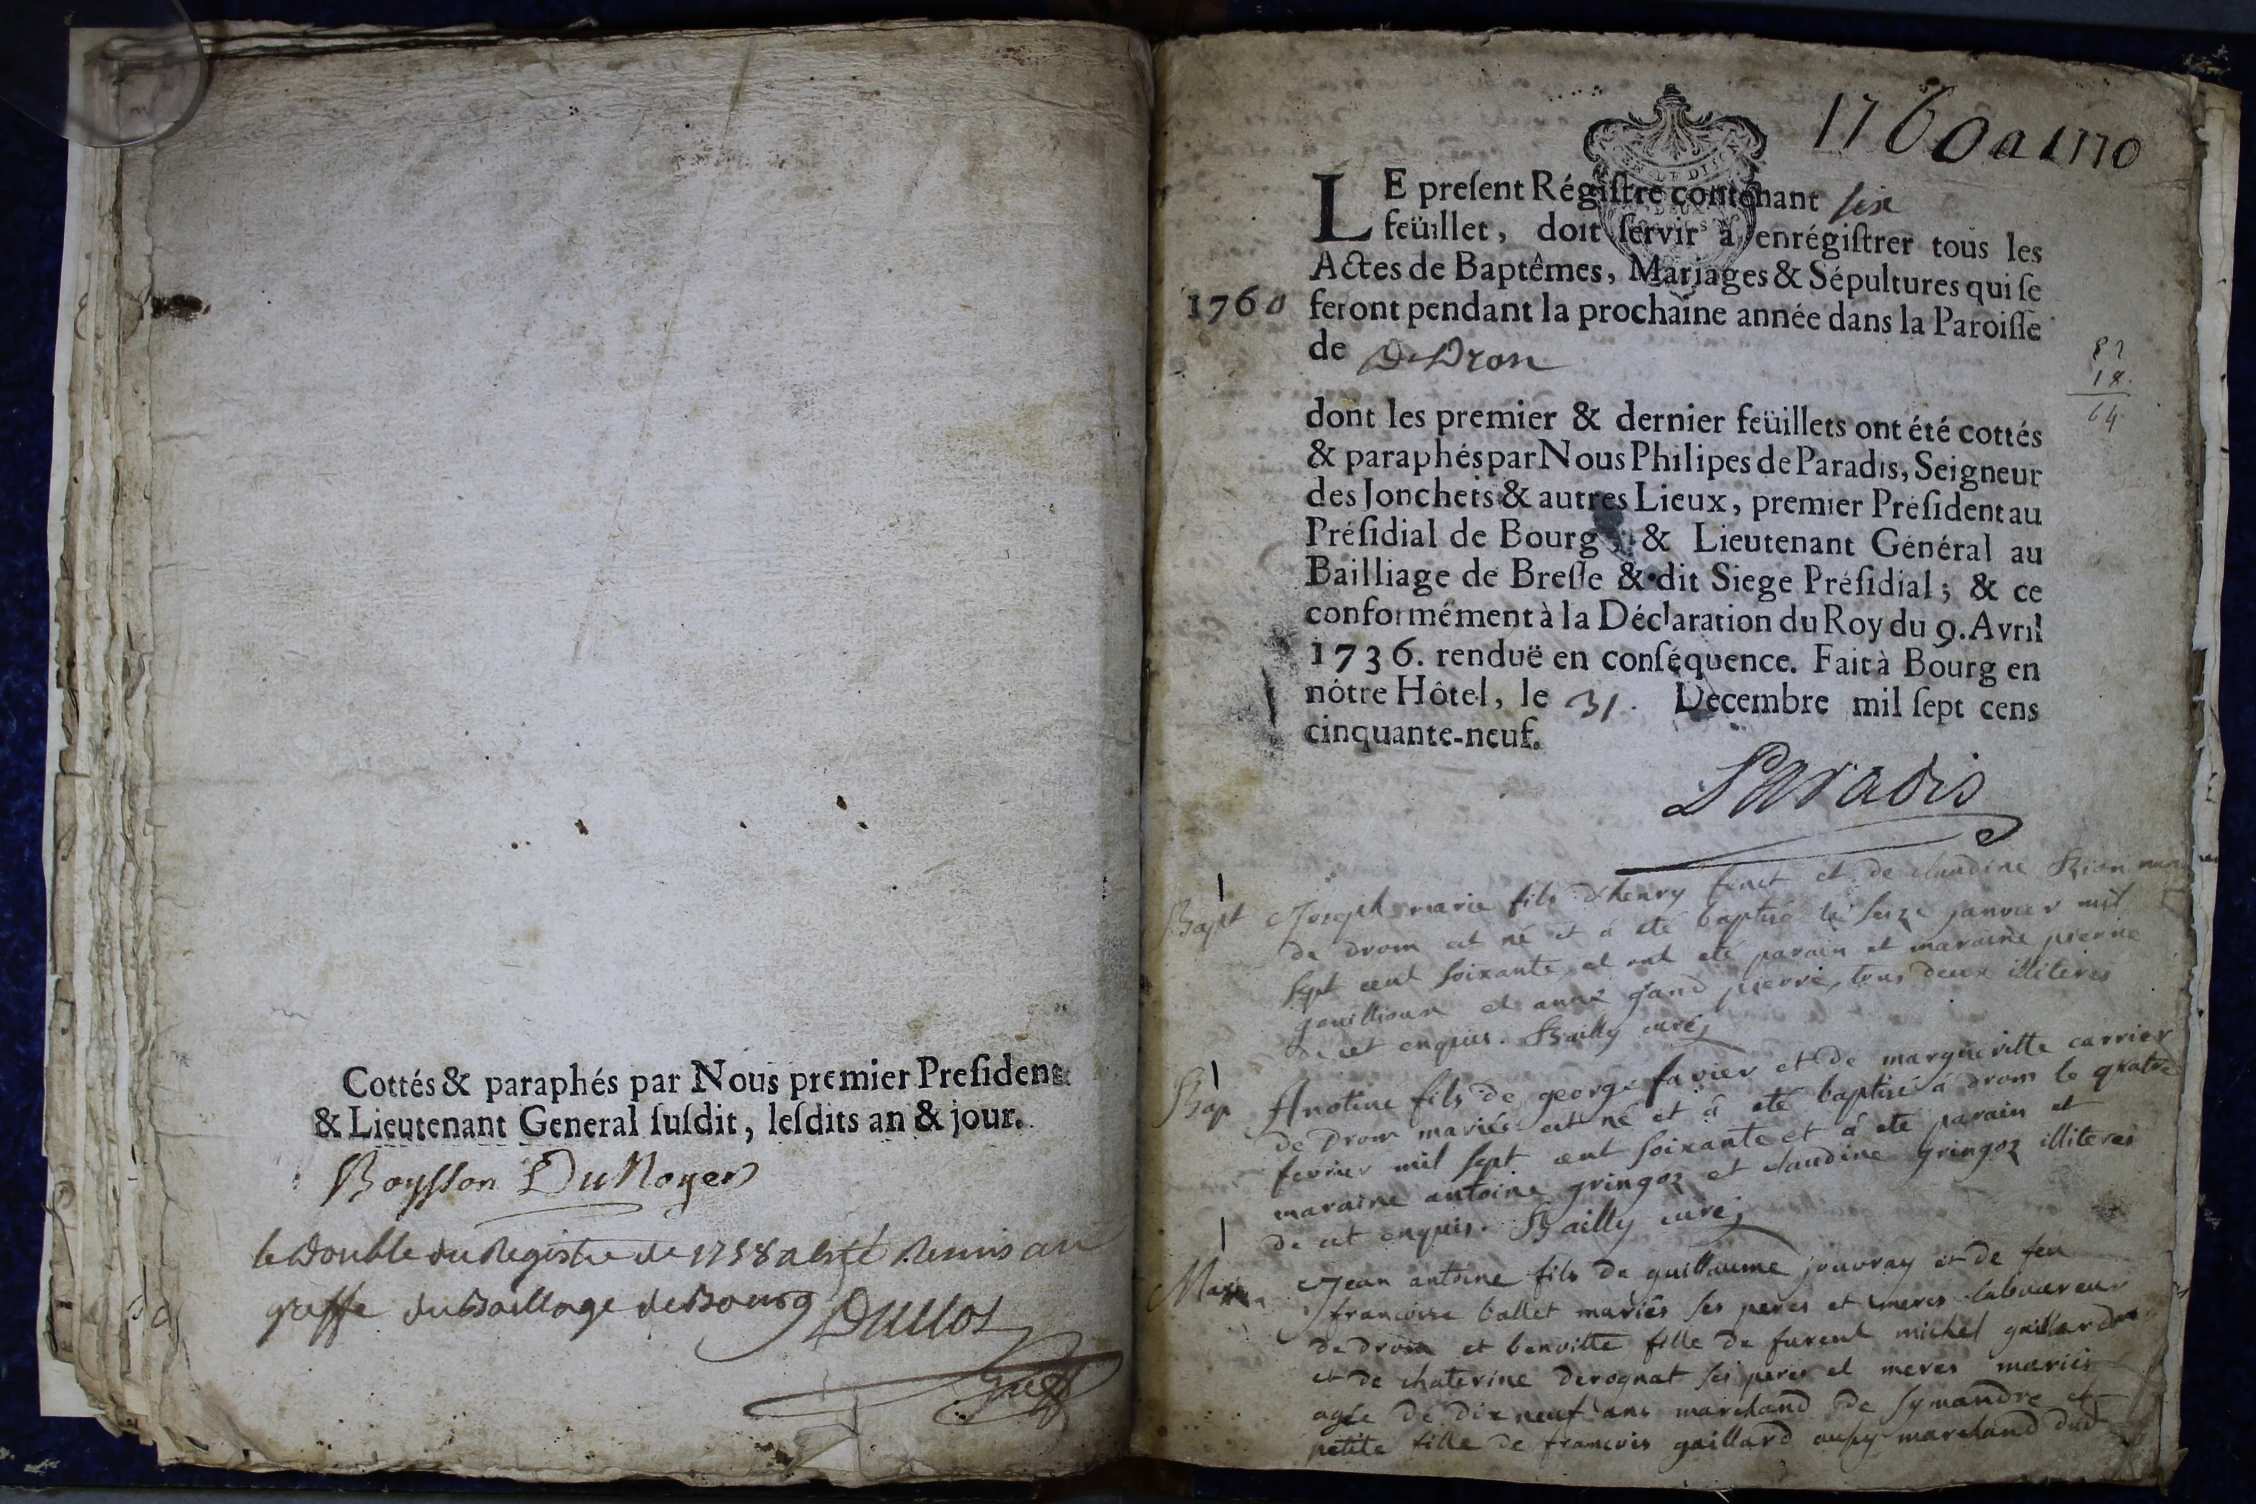 Cottés & paraphés par Nous premier Preſident
& Lieutenant General ſuſdit, leſdits an & jour.
Boysson DuNoyer
le Double du Registre de 1758 a esté Remis au
greffe du Baillage de Bourg Duclos
Greff
1760 a 1770
LE preſent Régiſtre contenant six
feüillet, doit ſervir à enrégiſtrer tous les
Actes de Baptêmes, Mariages & Sépultures qui ſe
1760 feront pendant la prochaine année dans la Paroiſſe
de De Dron
82
18.
64
dont les premier & dernier feüillets ont été cottés
& paraphés par Nous Philipes de Paradis, Seigneur
des Jonchets & autres Lieux, premier Préſident au
Préſidial de Bourg, & Lieutenant Général au
Bailliage de Breſſe & dit Siege Préſidial; & ce
conformément à la Déclaration du Roy du 9. Avril
1736. renduë en conſéquence. Fait à Bourg en
nôtre Hôtel, le 31. Decembre mil ſept cens
cinquante-neuf.
Paradis
1
Bapt Joseph marie fils d'henry et de claudine
de drom est né et á eté baptisé le seize janvier mil
sept cent soixante et ont eté parain et maraine pierre
gouillioux et anne grand pierre, tous deux illiteres
de cet enquis. Bailly curé
1
Bap Anotine fils de george favier et de margueritte carrier
de Drom mariés est né et â eté baptisé á drom le quatre
fevrier mil sept cent soixante et á ete parain et
maraine antoine gringoz et claudine gringoz illiteres
de cet enquis. Bailly curé
1
Mar Jean antoine fils de guillaume jouvray et de feu
francoise ballet mariés ses peres et meres laboureur
de drom et benoitte fille de furent michel gaillard
et de chaterine derognat ses peres et meres mariés
agée de dix neuf ans marchand de symandre et
petite fille de francois gaillard aussy marchand dud